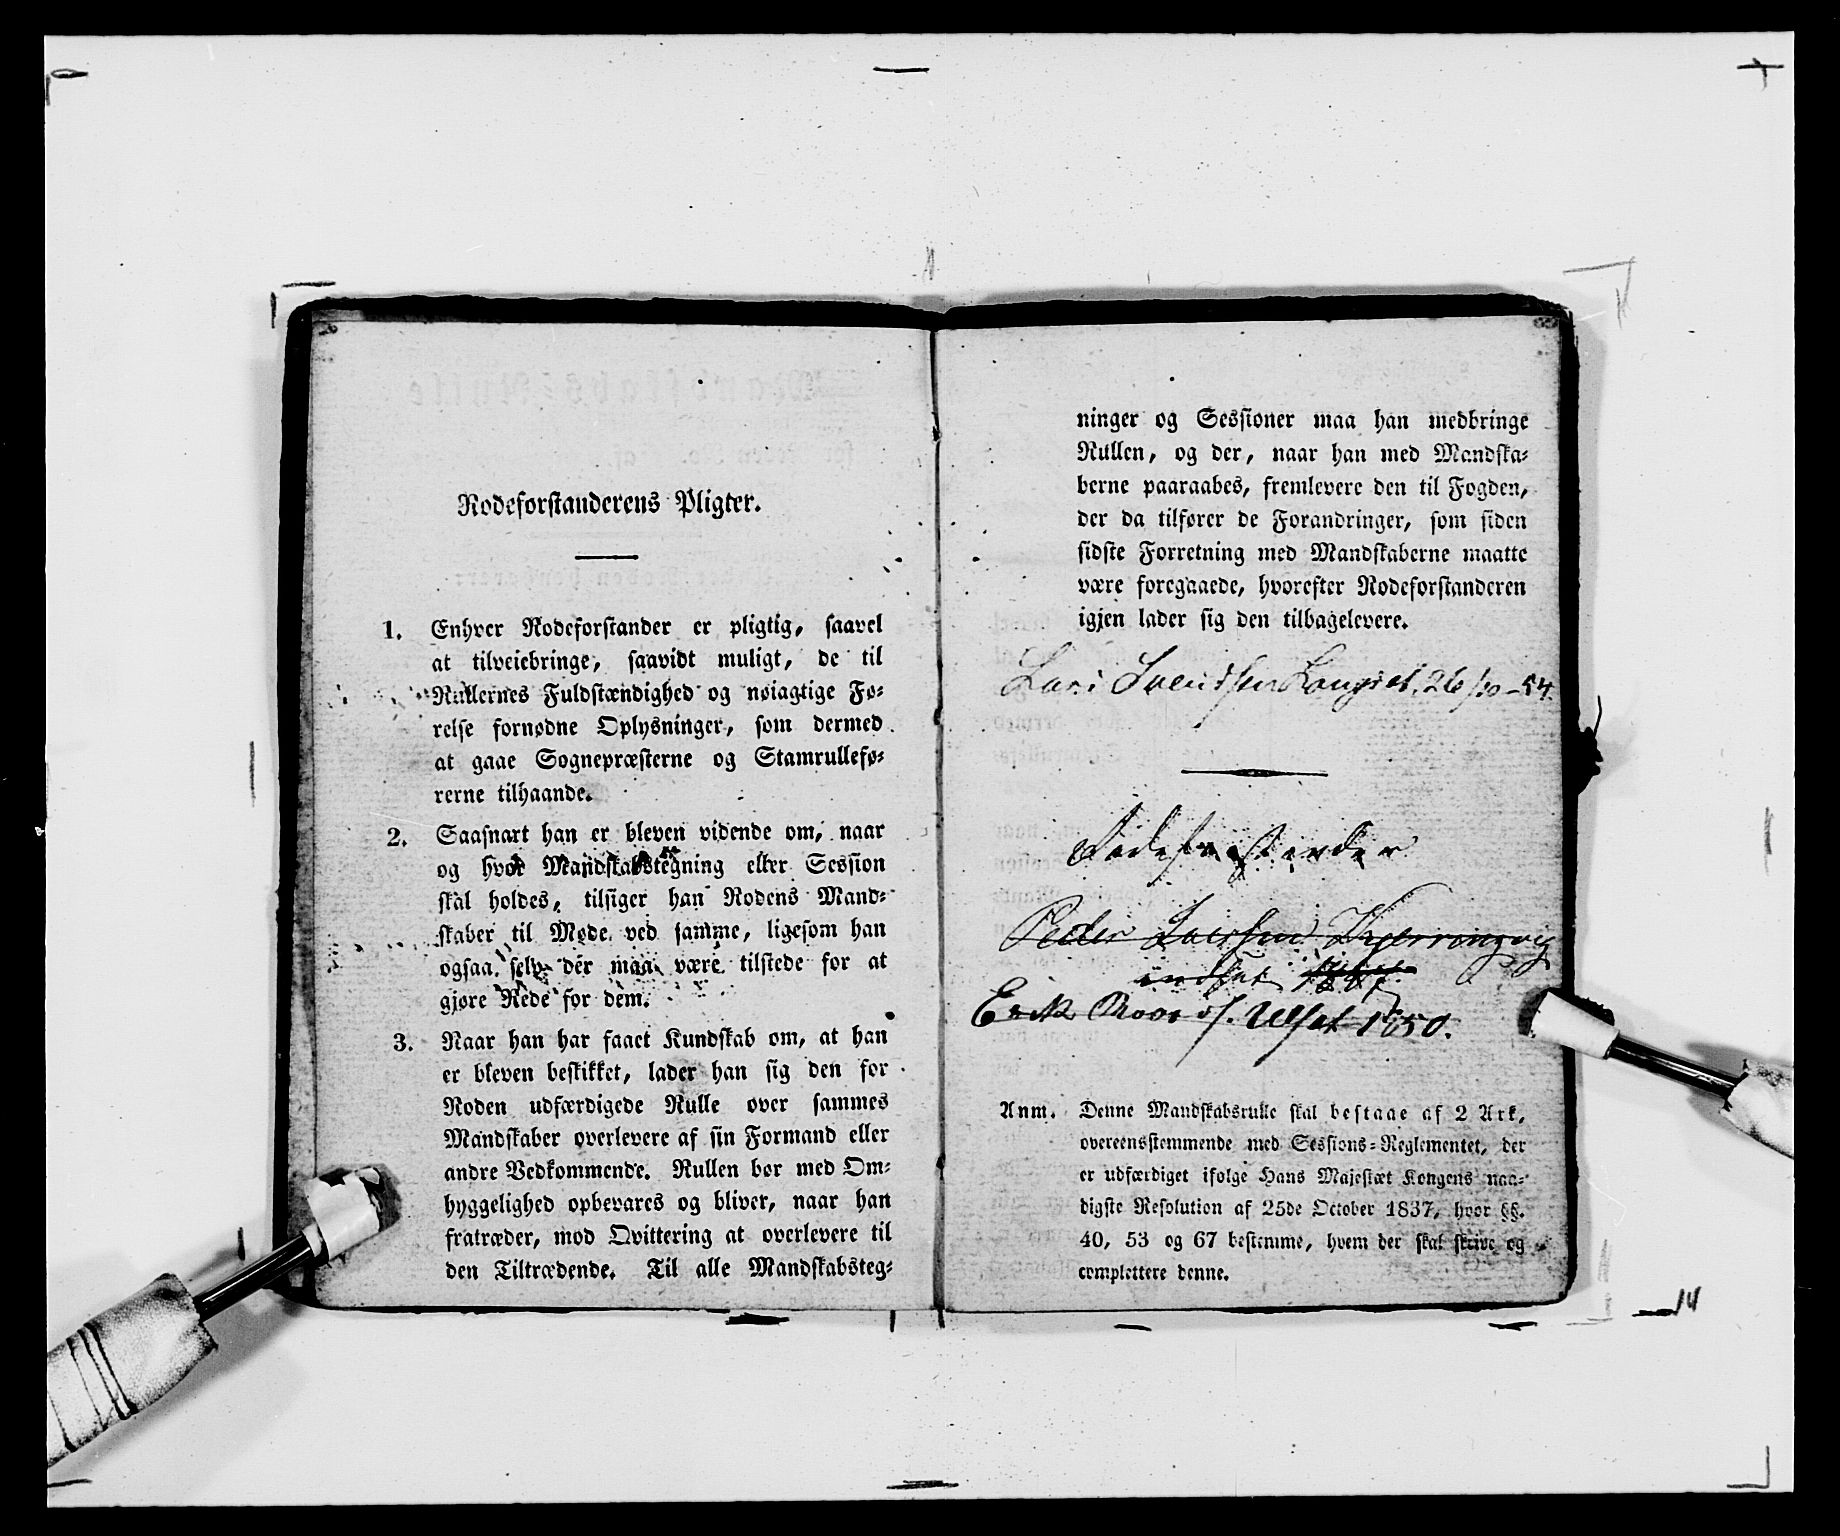 Rodeforstanderens Pligter.
1. Enhver Rodeforstander er pligtig, saavel
at tilveiebringe, saavidt muligt, de til
Rullernes Fuldstændighed og nøiagtige Fø-
relse fornødne Oplysninger, som dermed
at gaae Sognepræsterne og Stamrullefø-
rerne tilhaande.
2. Saasnart han er bleven vidende om, naar
og hvor Mandskabstegning eller Session
skal holdes, tilsiger han Rodens Mand-
skaber til Møde ved samme, ligesom han
ogsaa selv der maa være tilstede for at
gjøre Rede for dem.
3. Naar han har faaet Kundskab om, at han
er bleven beskikket, lader han sig den for
Roden udfærdigede Rulle over sammes
Mandskaber overlevere af sin Formand eller
andre Vedkommende. Rullen bør med Om-
hyggelighed opbevares og bliver, naar han
fratræder, mod Qvittering at overlevere til
den Tiltrædende. Til alle Mandskabsteg-
ninger og Sessioner maa han medbringe
Rullen, og der, naar han med Mandska-
berne paaraabes, fremlevere den til Fogden,
der da tilfører de Forandringer, som siden
sidste Forretning med Mandskaberne maatte
være foregaaede, hvorefter Rodeforstanderen
igjen lader sig den tilbagelevere.
Lars Svendsen 26/10-54.
Rodeforstander
Peder Larssen
indsat
Erik 1850.
Anm. Denne Mandskabsrulle skal bestaae af 2 Ark,
overeensstemmende med Sessions-Reglementet, der
er udfærdiget ifølge Hans Majestæt Kongens naa-
digste Resolution af 25de October 1837, hvor §§.
40, 53 og 67 bestemme, hvem der skal skrive og
complettere denne.
14